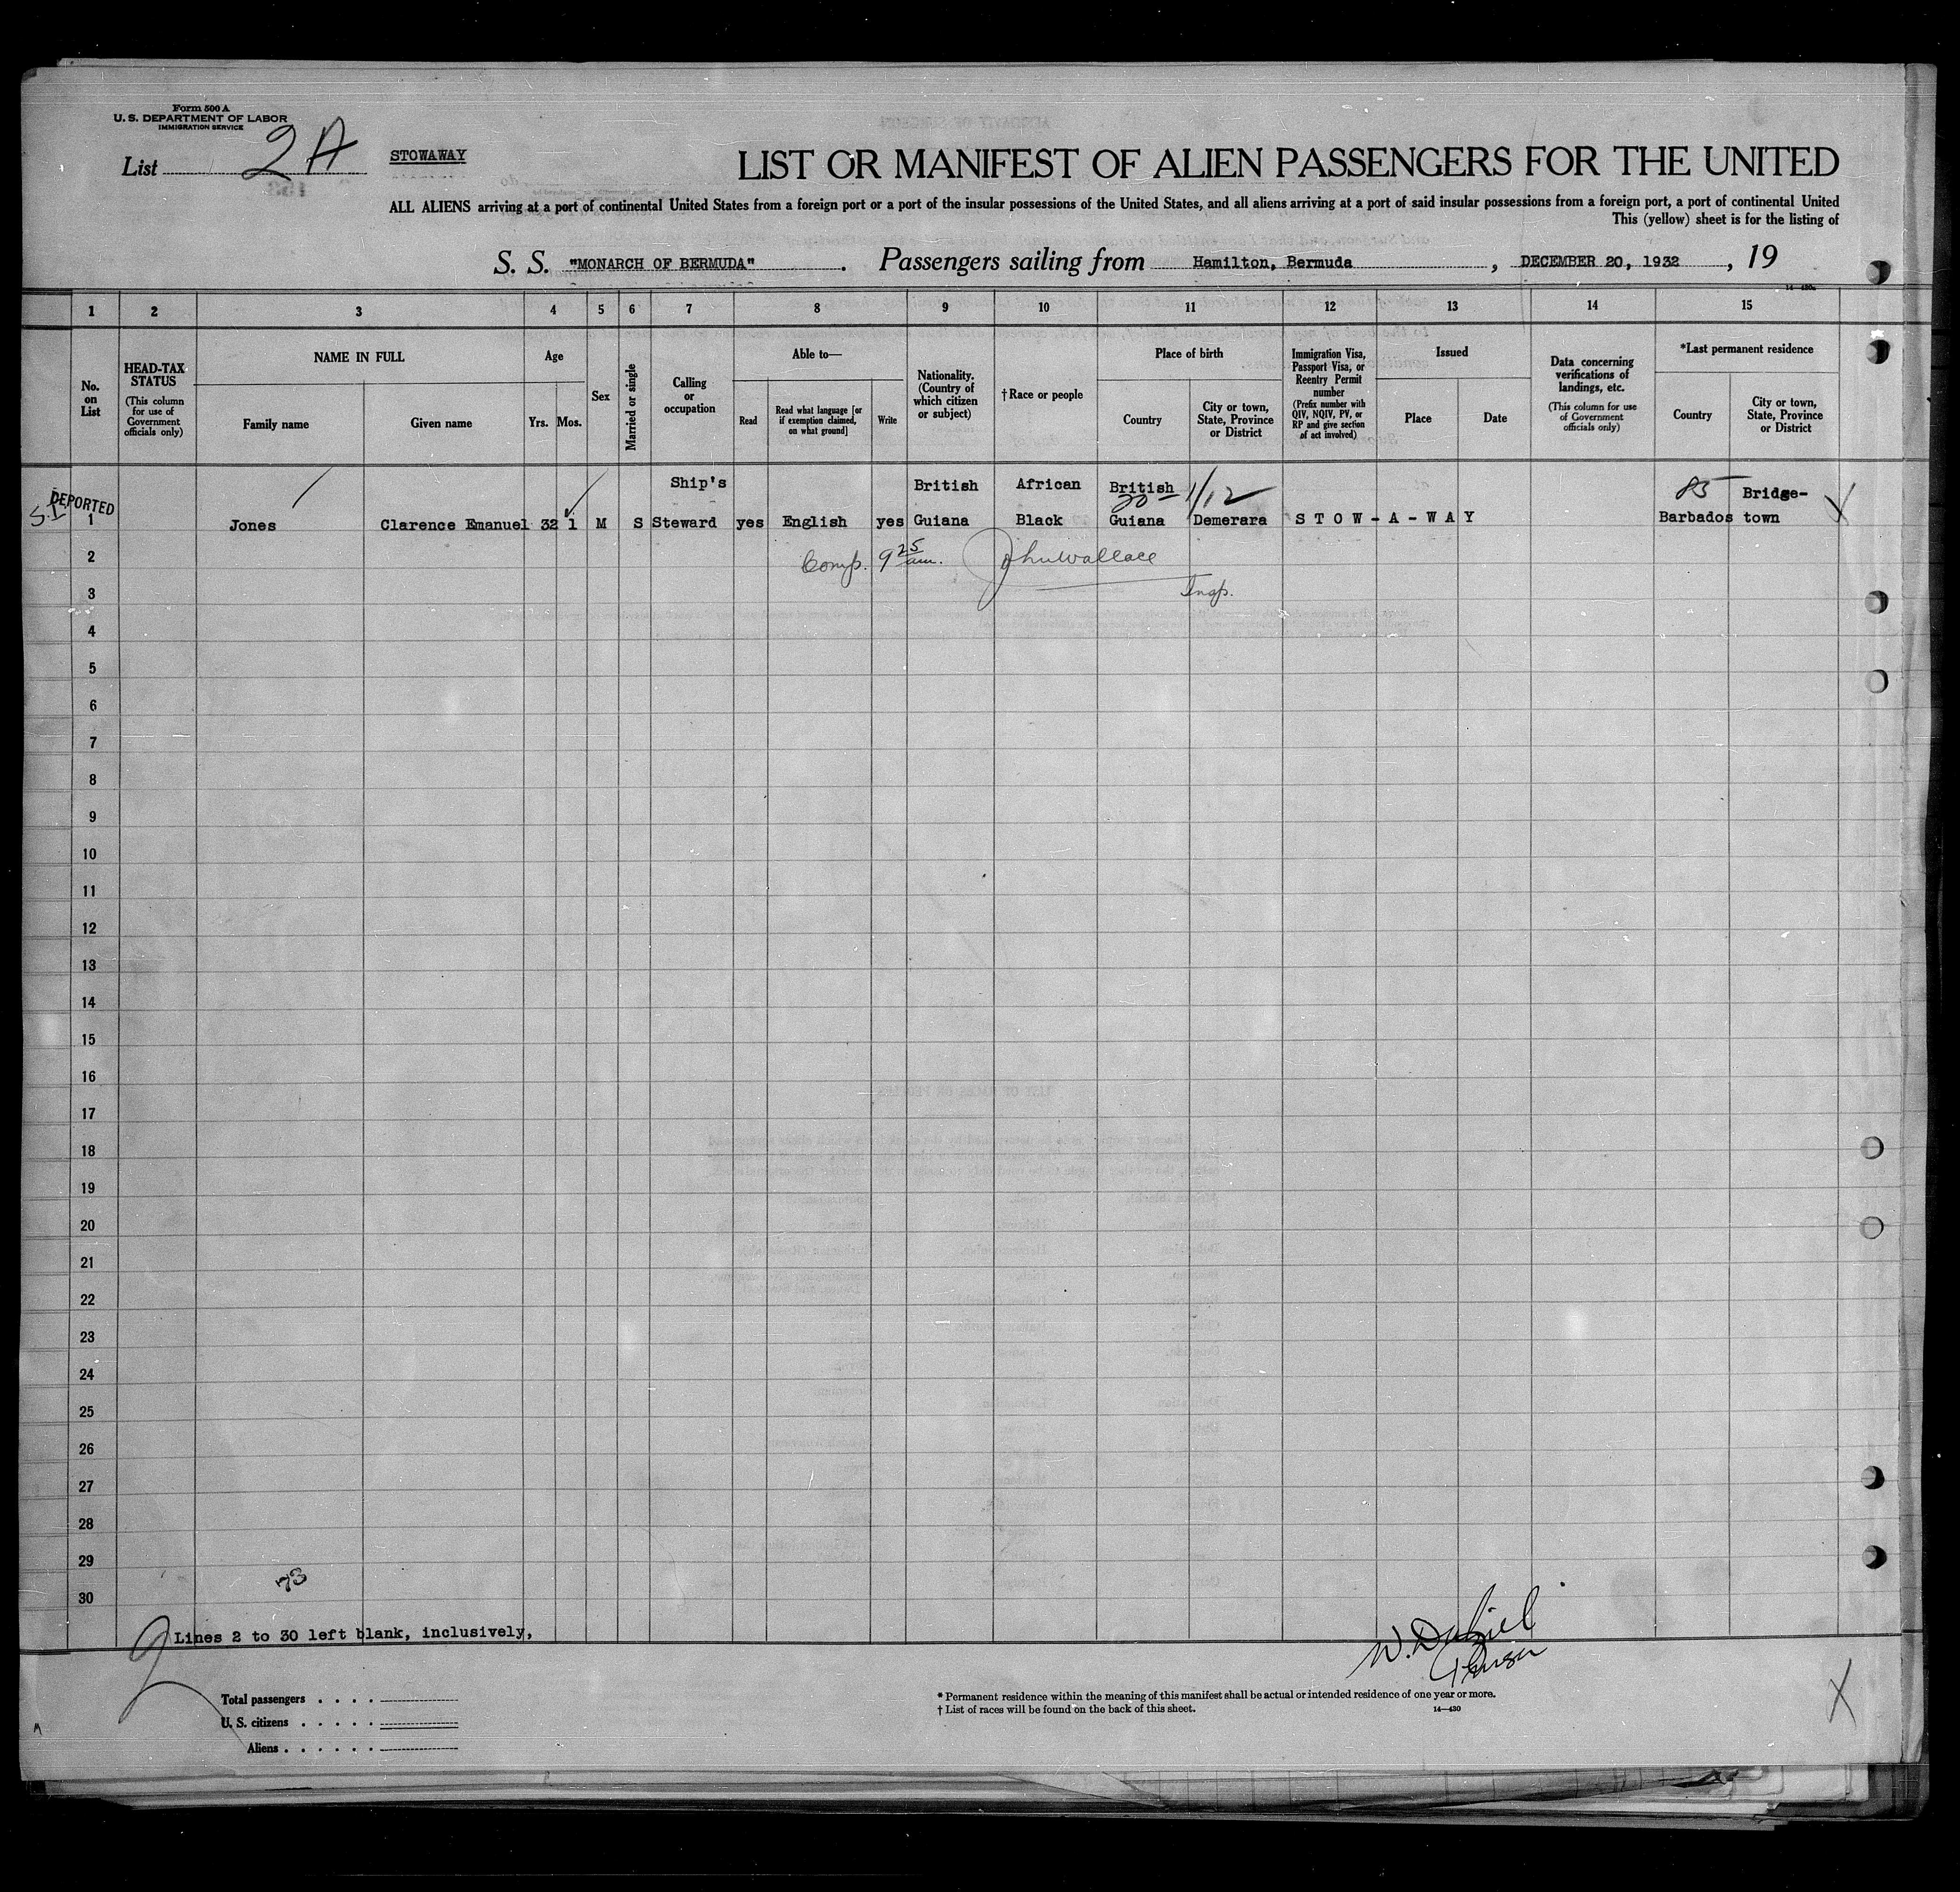 Form 500 A
U. S. DEPARTMENT OF LABOR
IMMIGRATION SERVICE
List 2A
STOWAWAY
LIST OR MANIFEST OF ALIEN PASSENGERS FOR THE UNITED
ALL ALIENS arriving at a port of continental United States from a foreign port or a port of the insular possessions of the United States, and all aliens arriving at a port of said insular possessions from a foreign port, a port of continental United
This (yellow) sheet is for the listing of
S. S. "MONARCH OF BERMUDA" . Passengers sailing from Hamilton, Bermuda , DECEMBER 20, 1932 , 19
14—430a
1 2 3 4 5 6 7 8 9 10 11 12 13 14 15
No. on List
HEAD-TAX STATUS (This column for use of Government officials only)
NAME IN FULL
Family name
Given name
Age
Yrs. Mos.
Sex
Married or single
Calling or occupation
Able to—
Read
Read what language [or if exemption claimed, on what ground]
Write
Nationality. (Country of which citizen or subject)
† Race or people
Place of birth
Country
City or town, State, Province or District
Immigration Visa, Passport Visa, or Reentry Permit number (Prefix number with QIV, NQIV, PV, or RP and give section of act involved)
Issued
Place
Date
Data concerning verifications of landings, etc. (This column for use of Government officials only)
*Last permanent residence
Country
City or town, State, Province or District
DEPORTED
S.I.
Ship's British African British 20 1/12 85 Bridge-
1 Jones Clarence Emanuel 32 1 M S Steward yes English yes Guiana Black Guiana Demerara STOW-A-WAY Barbados town
2 Comp. 9 25 am. John Wallace
3 Insp.
4
5
6
7
8
9
10
11
12
13
14
15
16
17
18
19
20
21
22
23
24
25
26
27
28
29
73
30
Lines 2 to 30 left blank, inclusively,
Purser
Total passengers . . . .
U. S. citizens . . . . .
Aliens . . . . . .
* Permanent residence within the meaning of this manifest shall be actual or intended residence of one year or more.
† List of races will be found on the back of this sheet.
14—430
X